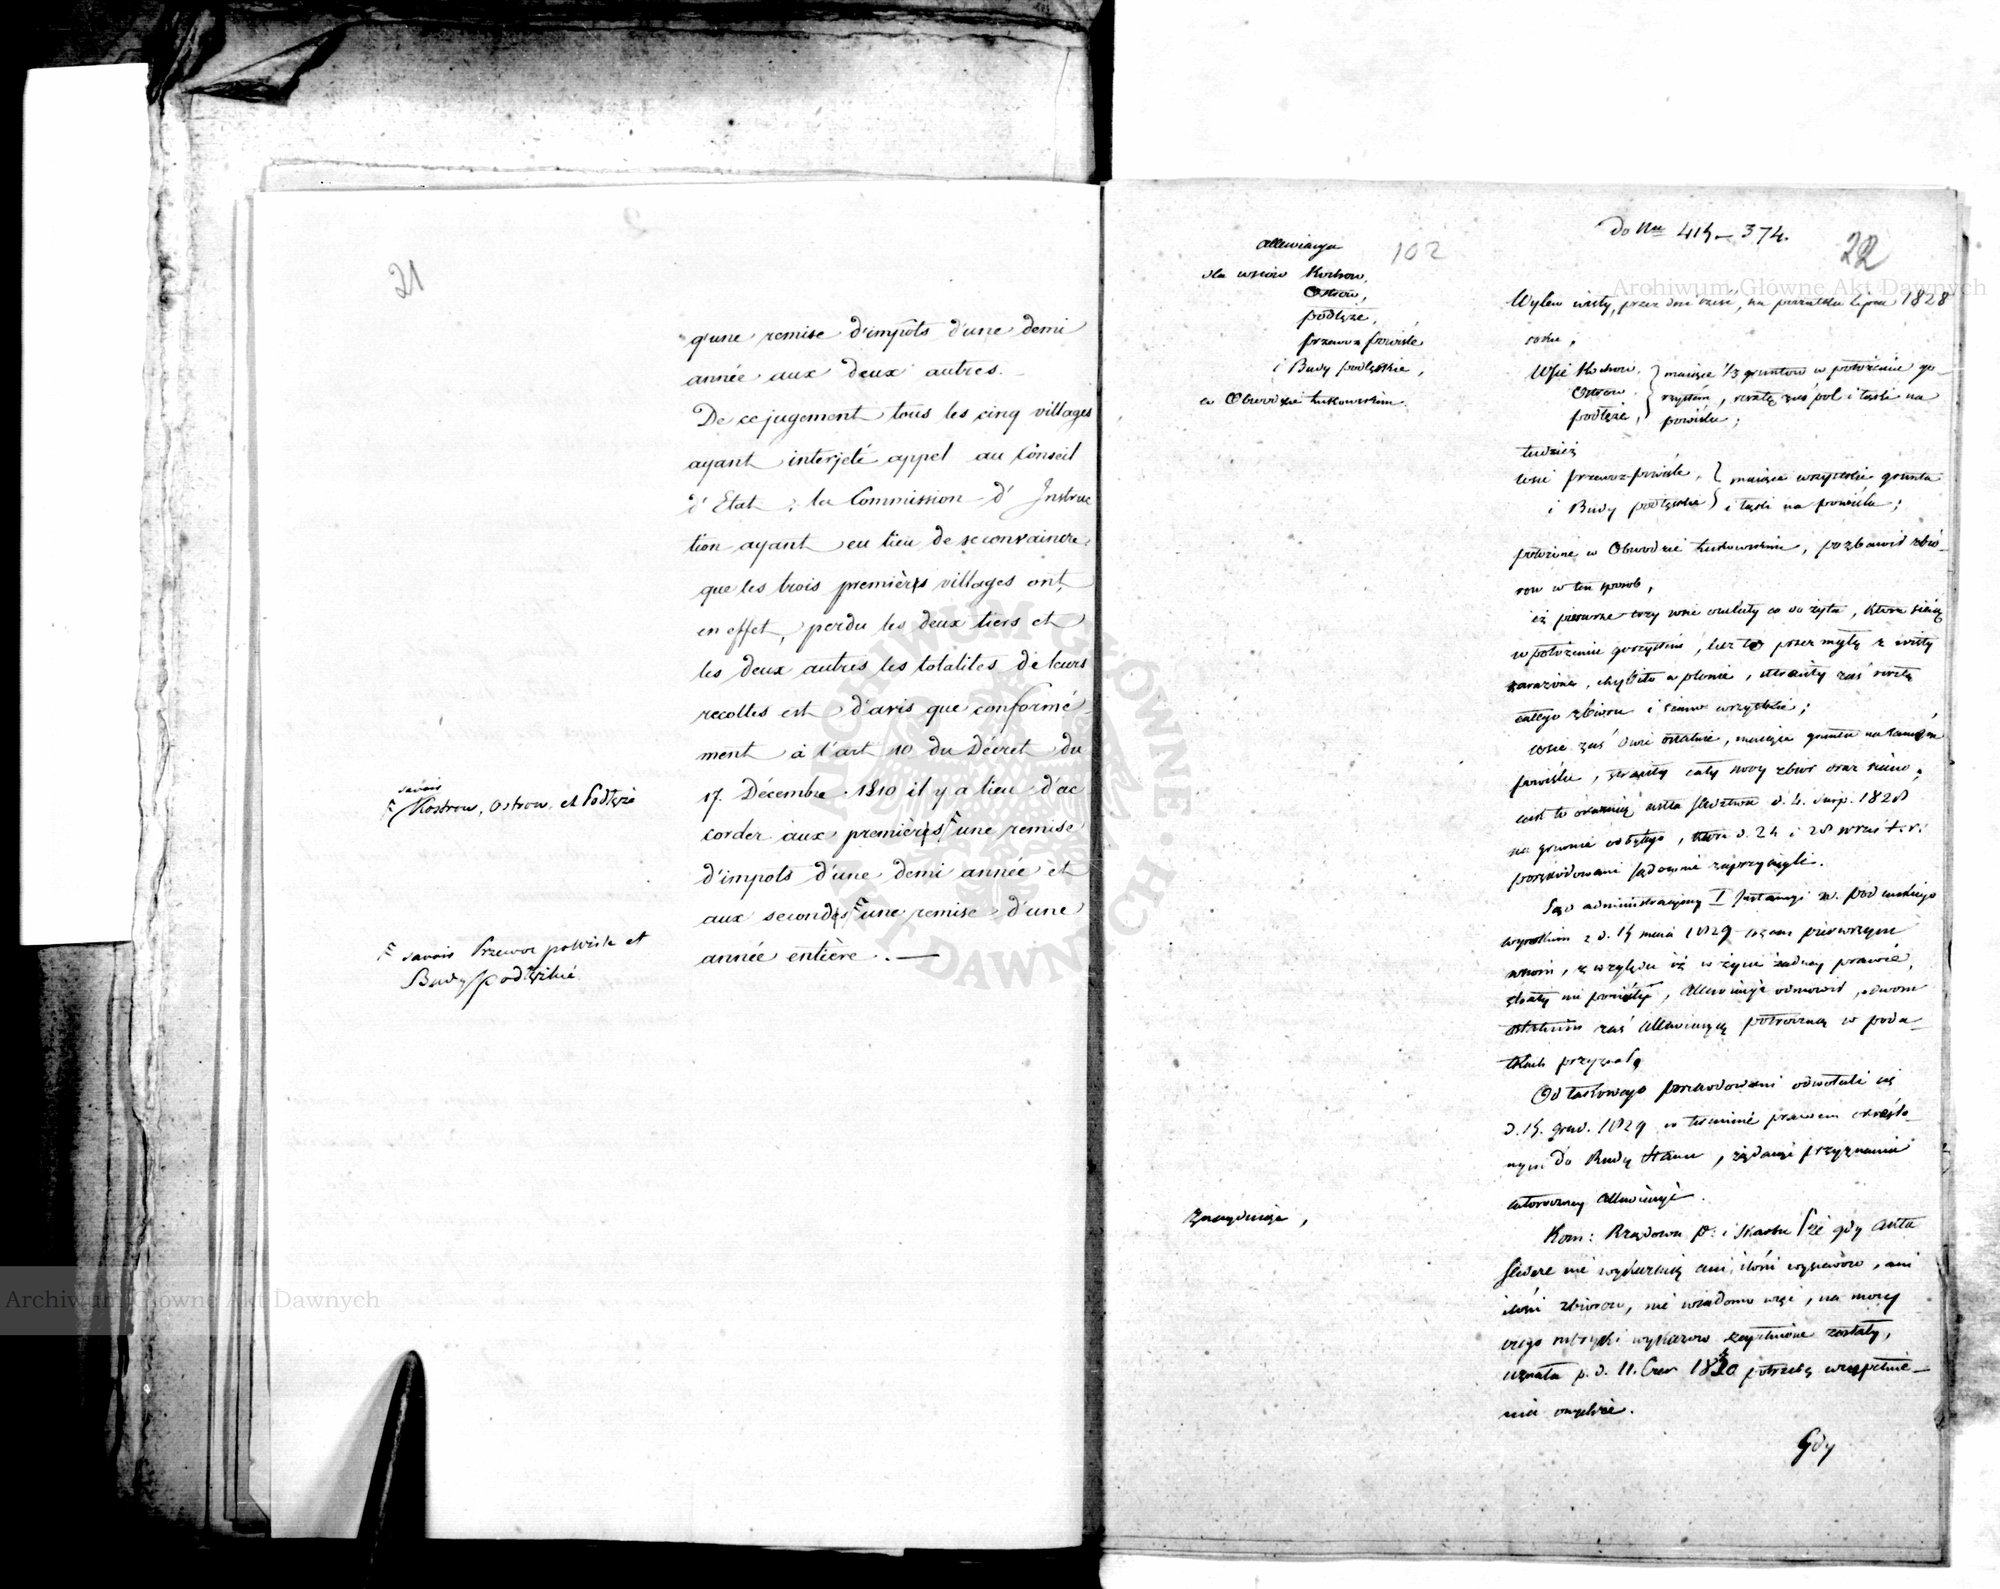 21
q'une remise d'impôts d'une demi
année aux deux autres.
De ce jugement tous les cinq villages
ayant interjeté appel au Conseil
d'Etat; la Commission d'Instruc
tion ayant eu lieu de se convaincre,
que les trois premiers villages ont,
en effet, perdu les deux tiers et
les deux autres les totalités de leurs
recoltes est d'avis que conformé-
ment à l'art 10 du Décret du
17. Décembre 1810 il y a lieu d'ac
corder aux premiers une remise
d'impots d'une demi année et
aux seconds une remise d'une
année entière. —
savoir
Kostrow, Ostrow, et Podłęże
savoir Przewoz powiśle et
Budy podłęzkie
Allewiacya
dla wsiów Kochow,
Ostrow,
podłęże,
przewoz powiśle
i Budy podłęzkie,
w Obwodzie Łukowskim.
102
do Nru 415–374.
22
Wylew wisły, przez dni sześć, na początku Lipca 1828
roku,
Wsie Kochow,
Ostrow
podłęże,
maiące 1/3 gruntow w położeniu gó-
rzystem, resztę zaś pol i łąki na
powiślu;
tudzież
wsie przewoz powiśle,
i Budy podłęzkie
maiące wszystkie grunta
i łąki na powiślu;
położone w Obwodzie Łukowskim, pozbawił zbio-
row w ten sposob,
iż pierwsze trzy wsie ocaliły co do żyta, które sieią
w położeniu gorzystem, lecz to przez mgłę z wisły
zarażone, chybiło w plonie, utraciły zaś resztę
całego zbioru i siano wszystkie;
wsie zaś dwie ostatnie, maiące grunta na samém
powiślu, straciły cały nowy zbior oraz siano;
na gruncie odbytego, d. 24 i 28 wrześ. t. r.
poszkodowani sądownie zaprzysięgli.
Sąd administracyiny I Instancyi w. podlaskiego
wyrokiem z d. 15 maia 1829 trzem pierwszym
wsiom, z względu iż w życie żadney prawie,
straty nie poniosły, Allewiacyi odmowił, dwom
ostatnim zaś Allewiacyą połroczną w poda-
tkach przyznał
Od takowego poszkodowani odwołali się
d. 15. grud. 1829 w terminie prawem określo-
nym do Rady Stanu, żądaiąc przyznania
całoroczney Allewiacyi.
Znayduiąc,
Kom: Rządowa P: i Skarbu że gdy akta
śledcze nie wykazuią ani ilości wysiewow, ani
ilości zbiorow, nie wiadomo więc, na mocy
czego rubryki wykazow zapełnione zostały,
uznała p. d. 11. Czer 1830 potrzebę uzupełnie-
nia onychże.
Gdy
Archiwum Główne Akt Dawnych
Archiwum Główne Akt Dawnych
ARCHIWUM GŁÓWNE AKT DAWNYCH